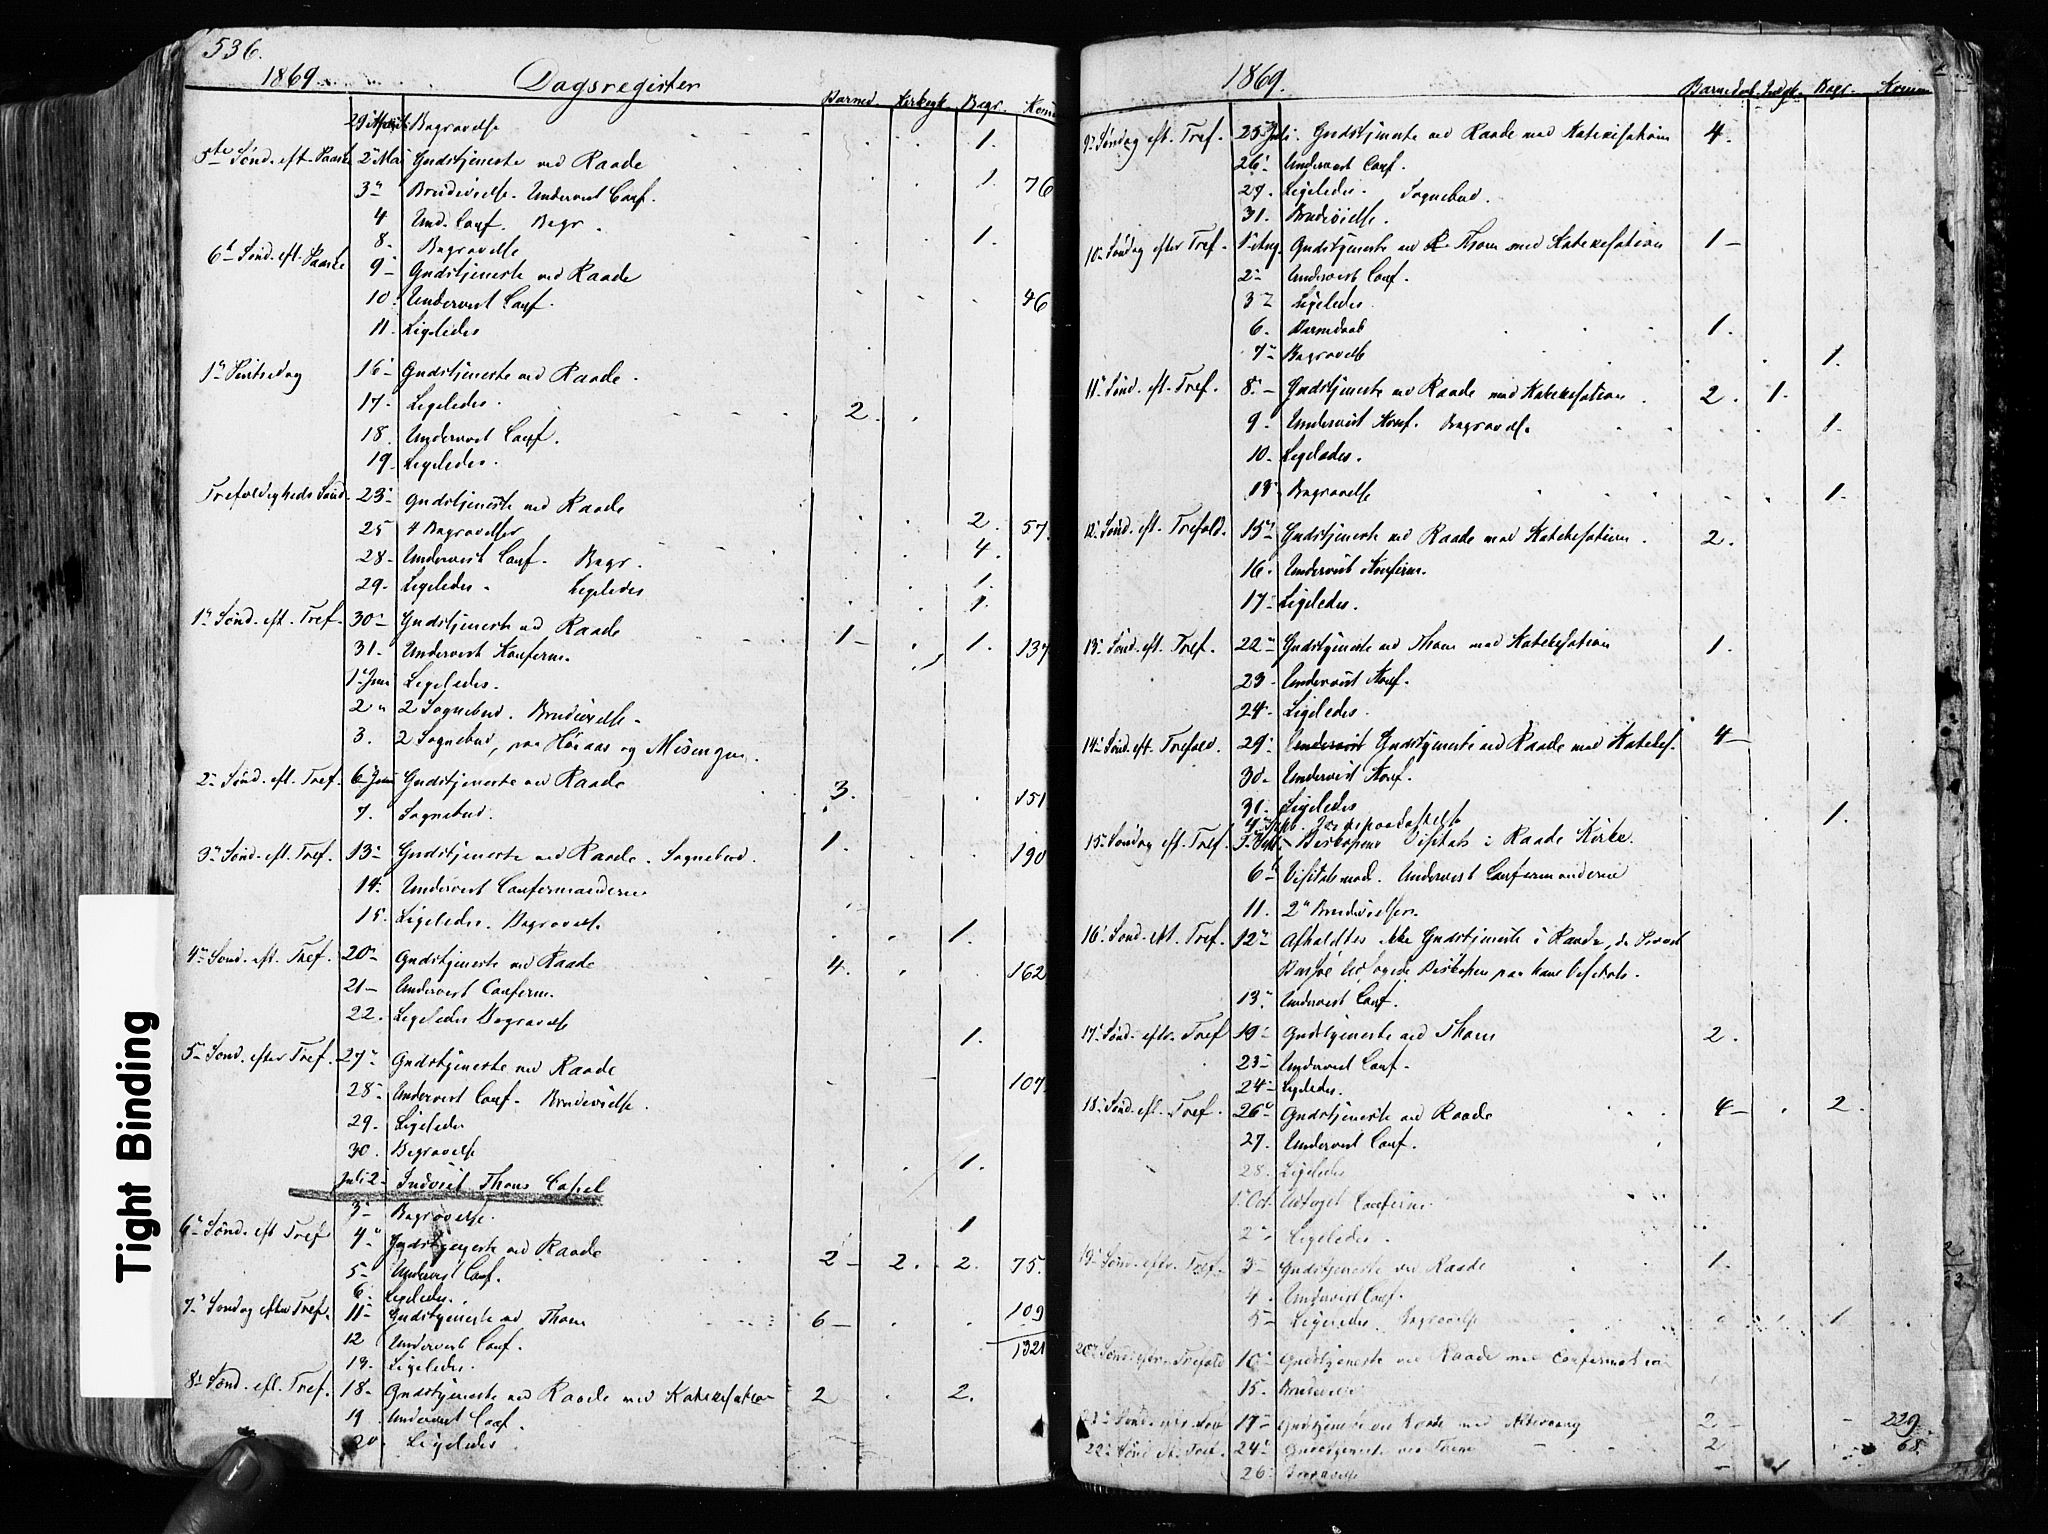 536.
1869. Dagsregister
Barned. Kirkegk. Begr. Kom
29 April Begravelse 1.
5te Sönd. eft. Paaske 2 Mai Gudstjeneste ved Raade 1. 76
3 Brudevielse. Undervist Conf.
4 Und. Conf. Begr. 1.
8. Begravelse
6te Sönd. eft. Paaske 9 Gudstjeneste ved Raade 46
10. Undervist Conf.
11. Ligeledes
1ste Pintsedag 16 Gudstjeneste ved Raade.
17. Ligeledes. 2.
18. Undervist Conf.
19. Ligeledes.
Trefoldigheds Sönd. 23 Gudstjeneste ved Raade 2. 57
25 4 Begravelser 4.
28. Undervist Conf. Begr. 1.
29. Ligeledes. Ligeledes 1.
1ste Sönd. eft. Tref. 30 Gudstjeneste ved Raade 1 1. 137
31. Undervist Konferm.
1 Juni Ligeledes.
2 2 Sognebud. Brudevielse.
3. 2 Sognebud, paa Haraas og Misengen.
2. Sönd. eft. Tref. 6 Juni Gudstjeneste ved Raade 3. 151
7. Sognebud.
3. Sönd. eft. Tref. 13 Gudstjeneste ved Raade. Sognebud. 1. 190
14. Undervist Confermanderne
15. Ligeledes. Begravelse 1.
4. Sönd. eft. Tref. 20 Gudstjeneste ved Raade 4. 162
21 Undervist Conferm.
22. Ligeledes Begravelse 1.
5 Sönd. efter Tref. 27 Gudstjeneste ved Raade 107
28 Undervist Conf. Brudevielse.
29. Ligeledes
30. Begravelse 1.
Juli 2 Indviet Thoms Capel
3 Begravelse. 1
6 Sönd. eft Tref 4 Gudstjeneste ved Raade 2 2. 2. 75.
5 Undervist Conf.
6. Ligeledes.
7 Söndag efter Tref. 11 Gudstjeneste ved Thom 6 109
12 Undervist Conf. 1321
13. Ligeledes.
8 Sönd. eft. Tref. 18 Gudstjeneste ved Raade med Katekisation 2 2.
19 Undervist Conf.
20. Ligeledes
1869.
Barnedaab. Begr. Kom
9 Söndag eft. Tref. 25 Juli Gudstjeneste ved Raade med Katekisation 4.
26. Undervist Conf.
27. Ligeledes. Sognebud.
31. Brudevielse.
10 Söndag efter Tref. 1 Aug. Gudstjeneste ved Thom med Katekisation 1
2 Undervist Conf.
3 Ligeledes.
6. Barnedaab 1.
7 Begravelse 1.
11 Sönd. eft. Tref. 8 Gudstjeneste ved Raade med Katekisation. 2. 1.
9. Undervist Konf. Begravelse 1.
10. Ligeledes.
13. Begravelse 1.
12 Sönd. eft. Trefold. 15 Gudstjeneste ved Raade med Katekisation. 2.
16. Undervist Konferm.
17 Ligeledes.
13 Sönd. eft. Tref. 22 Gudstjeneste ved Thom med Katekisation 1.
23 Undervist Konf.
24. Ligeledes.
14 Sönd. eft. Trefold. 29 Undervist Gudstjeneste ved Raade med Katekis. 4
30. Undervist Konf.
31. Ligeledes 1.
4 Sept. Jordspaakastelse
15 Söndag eft. Tref. 5 Sept. Biskopens Visitats i Raade Kirke.
6 Visitatsmöd. Undervist Confermanderne
11. 2 Brudevielser.
16. Sönd. eft. Tref. 12 Afholdtes ikke Gudstjeneste i Raade, da Provst
ledsagede Biskopen paa hans Visitats.
13 Undervist Conf.
17 Sönd. eftr. Tref 19 Gudstjeneste ved Thom 2.
23 Undervist Conf.
24 Ligeledes.
18 Sönd. eft. Tref. 26 Gudstjeneste ved Raade 4 2.
27. Undervist Conf.
28. Ligeledes
1 Oct. Undervist Conferm.
2 Ligeledes.
19 Sönd. eftr. Tref. 3 Gudstjeneste ved Raade 1.
4. Undervist Conf.
5 Ligeledes. Begravelse 1
20 Sönd. eftr. Trefold 10 Gudstjeneste ved Raade med Confermation
15. Brudevielse
21 Sönd. eft. Tref 17 Gudstjeneste ved Raade med Altergang 2 229.
22 Sönd. eft. Tref. 24 Gudstjeneste ved Thom 2 68.
26 Begravelse
Tight Binding